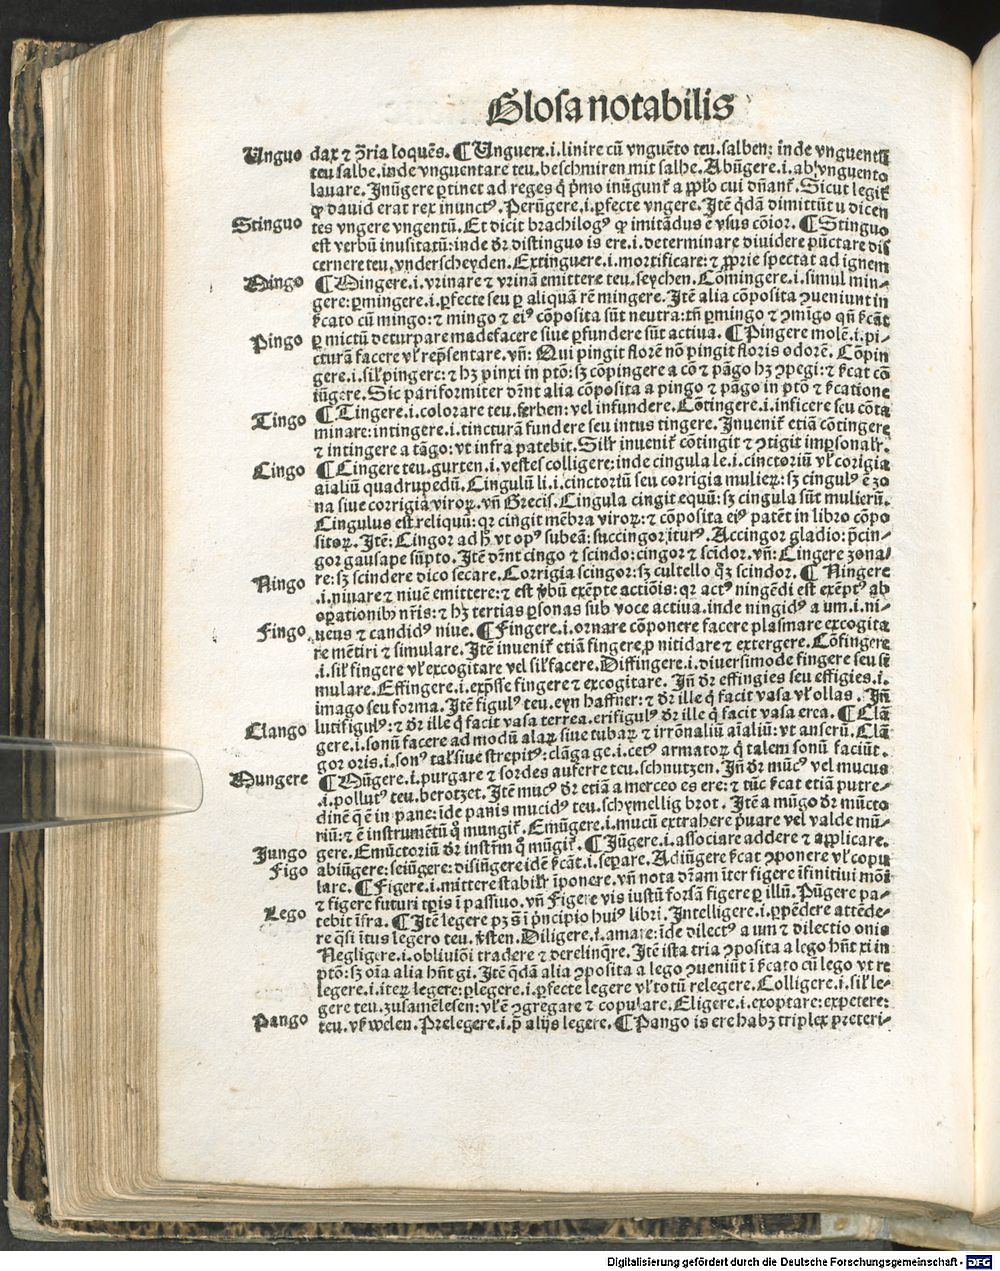 Glosa notabilis
Unguo dax ⁊ ꝯ̄ria loquēs. ¶ Unguere .i. linire cū vnguēto teu. salben: inde vnguentū
teu salbe. inde vnguentare teu. beschmiren mit salbe. Abūgere .i. ab vnguento
lauare. Inūgere ꝑtinet ad reges q̄ p̄mo inūgunt᷑ a ꝓpl̄o cui dn̄ant᷑. Sicut legit᷑
ꝙ dauid erat rex inunctꝰ. Perūgere .i. ꝑfecte vngere. Itē q̄dā dimittūt u dicen
Stinguo tes vngere vngentū. Et dicit brachilogꝰ ꝙ imitādus ē vsus cōior. ¶ Stinguo
est verbū inusitatū: inde dr̄ distinguo is ere .i. determinare diuidere pūctare dis
cernere teu. vnderscheyden. Extinguere .i. mortificare: ⁊ ꝓprie spectat ad ignem
Mingo ¶ Mingere .i. vrinare ⁊ vrinā emittere teu. seychen. Cōmingere .i. simul min⸗
gere: ꝑmingere .i. ꝑfecte seu ꝑ aliquā rē mingere. Itē alia cōposita ꝯueniunt in
ẜcato cū mingo: ⁊ mingo ⁊ eiꝰ cōposita sūt neutra: tn̄ ꝑmingo ⁊ ꝯmīgo qn̄ ẜcāt
Pingo ꝑ mictū deturpare madefacere siue ꝑfundere sūt actiua. ¶ Pingere molē .i. pi⸗
cturā facere vl᷑ rep̄sentare. vn̄: Qui pingit florē nō pingit floris odorē. Cōpin
gere .i. sil᷑ pingere: ⁊ hꝫ pinxi in ptō: sꝫ cōpingere a cō ⁊ pāgo hꝫ ꝯpegi: ⁊ ẜcat cō
iūgere. Sic pariformiter dn̄t alia cōposita a pingo ⁊ pāgo in ptō ⁊ ẜcatione
Tingo ¶ Tingere .i. colorare teu. ferben: vel infundere. Cōtingere .i. inficere seu cōta
minare: intingere .i. tincturā fundere seu intus tingere. Inuenit᷑ etiā cōtingere
⁊ intingere a tāgo: vt infra patebit. Silr᷑ inuenit᷑ cōtingit ⁊ ꝯtigit imꝑsonalr᷑.
Cingo ¶ Cingere teu. gurten .i. vestes colligere: inde cingula le .i. cinctoriū vl᷑ corigia
aīaliū quadrupedū. Cingulū li .i. cinctoriū seu corrigia mulieꝝ: sꝫ cingulꝰ ē zo
na siue corrigia viroꝝ. vn̄ Grecis. Cingula cingit equū: sꝫ cingula sūt mulierū.
Cingulus est reliquū: qꝛ cingit mēbra viroꝝ: ⁊ cōposita eiꝰ patēt in libro cōpo
sitoꝝ. Itē: Cingor ad hꝫ vt opꝰ subeā: succingor iturꝰ. Accingor gladio: p̄cin⸗
gor gausape sūpto. Itē dn̄t cingo ⁊ scindo: cingor ⁊ scīdor. vn̄: Cingere zona⸗
Ningo re: sꝫ scindere dico secare. Corrigia scingor: sꝫ cultello qꝫ scindor. ¶ Ningere
.i. niuare ⁊ niuē emittere: ⁊ est v̄bū exēpte actiōis: qꝛ actꝰ ningēdi est exēptꝰ ab
oꝑationibꝰ nr̄is: ⁊ hꝫ tertias ꝑsonas sub voce actiua. inde ningidꝰ a um .i. ni⸗
Fingo ueus ⁊ candidꝰ niue. ¶ Fingere .i. ornare cōponere facere plasmare excogita
re mētiri ⁊ simulare. Itē inuenit᷑ etiā fingere ꝓ nitidare ⁊ extergere. Cōfingere
.i. sil᷑ fingere vl᷑ excogitare vel sil᷑ facere. Diffingere .i. diuersimode fingere seu sī
mulare. Effingere .i. exp̄sse fingere ⁊ excogitare. Jn̄ dr̄ effingies seu effigies .i.
imago seu forma. Itē figulꝰ teu. eyn haffner: ⁊ dr̄ ille q̄ facit vasa vl᷑ ollas. Jn̄
lutifigulꝰ: ⁊ dr̄ ille q̄ facit vasa terrea. erifigulꝰ dr̄ ille q̄ facit vasa erea. ¶ Clā
Clango gere .i. sonū facere ad modū alaꝝ siue tubaꝝ ⁊ irrōnaliū aīaliū: vt anserū. Clā
gor oris .i. sonꝰ talis siue strepitꝰ: clāga ge .i. cetꝰ armatoꝝ q̄ talem sonū faciūt.
Mungere ¶ Mūgere .i. purgare ⁊ sordes auferre teu. schnutzen. Jn̄ dr̄ mūcꝰ vel mucus
.i. pollutꝰ teu. berotzet. Itē mucꝰ dr̄ etiā a merceo es ere: ⁊ tūc ẜcat etiā putre⸗
dinē q̄ ē in pane: īde panis mucidꝰ teu. schymellig brot. Itē a mūgo dr̄ mūcto
riū: ⁊ ē instrumētū q̊ mungit᷑. Emūgere .i. mucū extrahere p̄uare vel valde mū⸗
Jungo gere. Emūctoriū dr̄ instrm̄ q̊ mūgit᷑. ¶ Jūgere .i. associare addere ⁊ applicare.
Figo abiūgere: seiūgere: disiūgere idē ẜcāt .i. seꝑare. Adiūgere ẜcat ꝯponere vl᷑ copu
lare. ¶ Figere .i. mittere stabilr᷑ īponere. vn̄ nota dr̄am īter figere īfinitiui modi
⁊ figere futuri tꝑis ī passiuo. vn̄ Figere vis iustū forsā figere ꝑ illū. Pūgere pa⸗
Lego tebit īfra. ¶ Itē legere pꝫ s̄ ī p̄ncipio huiꝰ libri. Intelligere .i. ꝑpēdere attēde⸗
re q̄si ītus legero teu. v̄sten. Diligere .i. amare: īde dilectꝰ a um ⁊ dilectio onis
Negligere .i. obliuiōi tradere ⁊ derelinq̄re. Itē ista tria ꝯposita a lego hn̄t xi in
ptō: sꝫ oīa alia hn̄t gi. Itē q̄dā alia ꝯposita a lego ꝯueniūt ī ẜcato cū lego vt re
legere .i. iteꝝ legere: ꝑlegere .i. ꝑfecte legere vl᷑ totū relegere. Colligere .i. sil᷑ le⸗
gere teu. zusamēlesen: vl᷑ ē ꝯgregare ⁊ copulare. Eligere .i. exoptare: expetere:
Pango teu. vß welen. Prelegere .i. p̄ alijs legere. ¶ Pango is ere habꝫ triplex preteri⸗
Digitalisierung gefördert durch die Deutsche Forschungsgemeinschaft - DFG